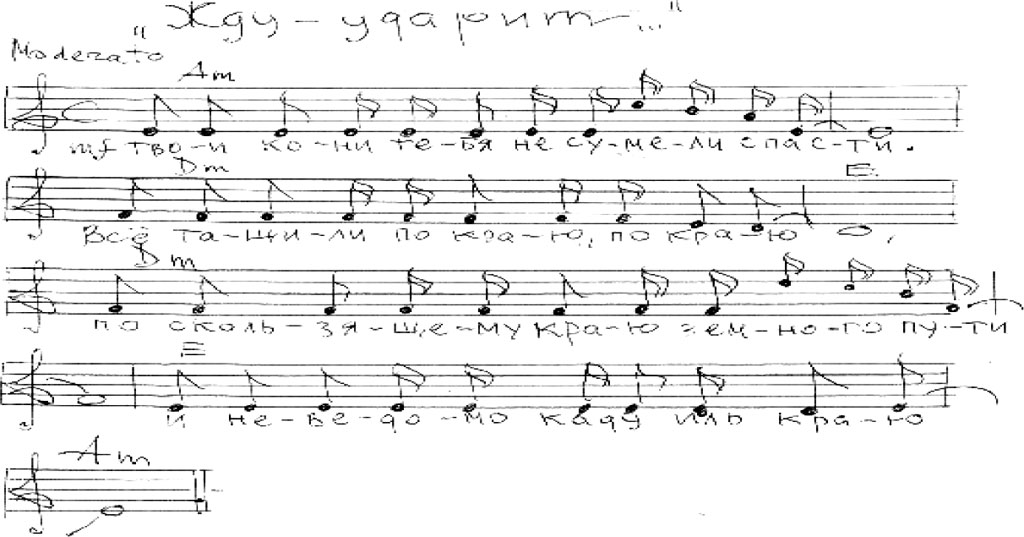 „Жду – ударит..."
Moderato
Am
mf тво-и ко-ни те-бя не су-ме-ли спас-ти.
Dm E
Всё та-щи-ли по кра-ю, по кра-ю,
Dm
по сколь-зя-ще-му кра-ю зем-но-го пу-ти
E
и не-ве-до-мо каду иль кра-ю
Am